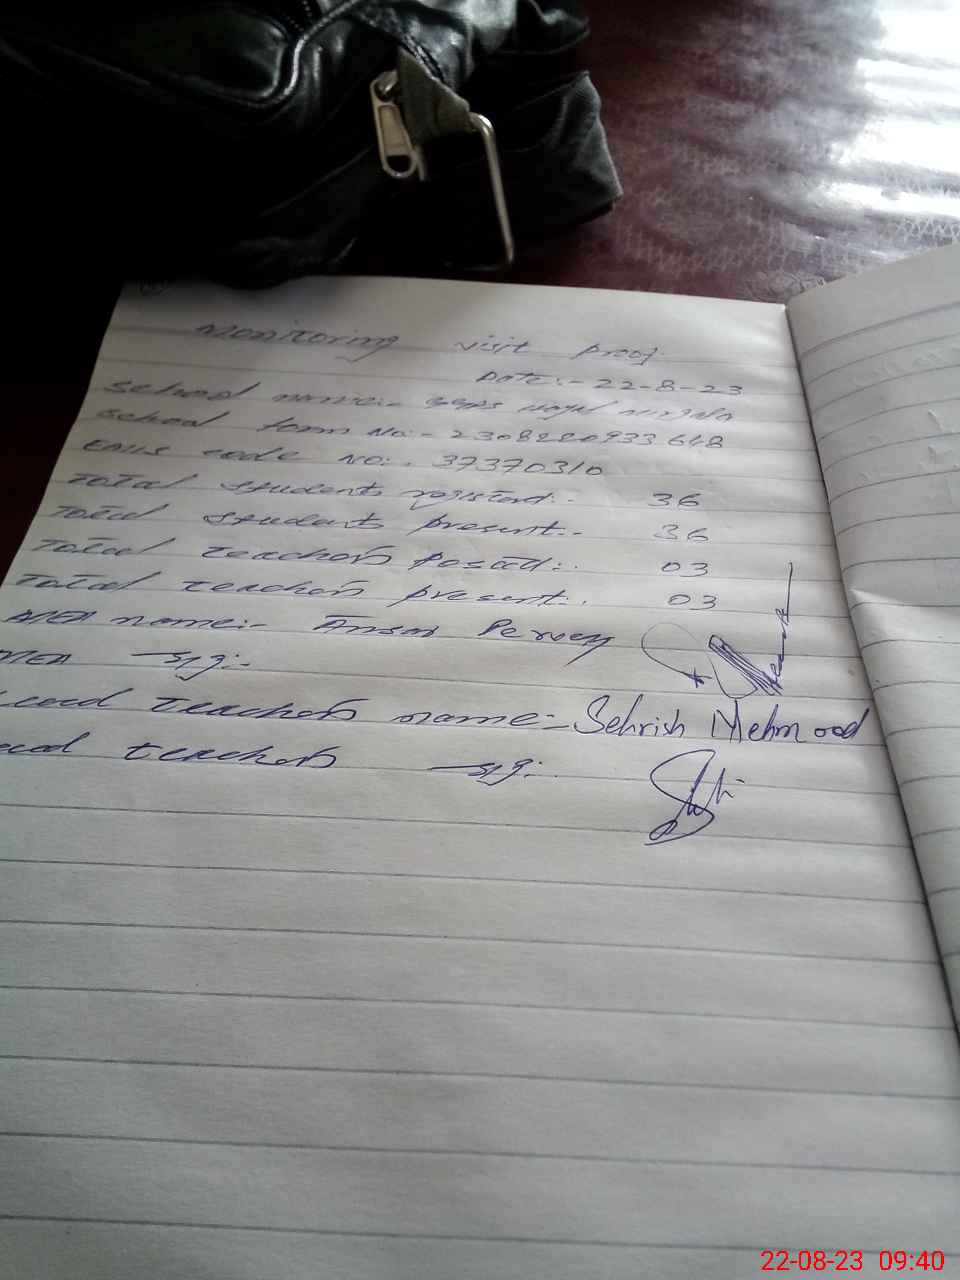 Monitoring visit proof.
Date:- 22-8-23
School name:- GGPS
School form No:- 2308220933648
EMIS code No:. 37370310
Total students registard:- 36
Total students present:- 36
Total teachers Posatd:. 03
Total teachers present:. 03
MEA name:- Ansar Pervez
MEA sig:-
Head teachers name:- Sehrish Mehmood
Head teachers sig:
22-08-23 09:40